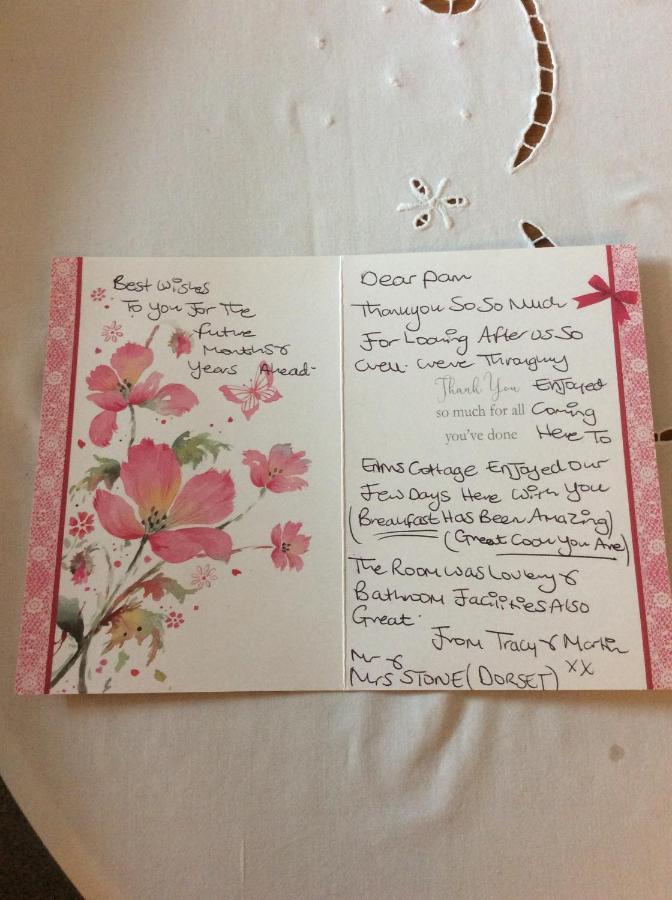 Best Wishes
To You For The
Future
Months &
Years Ahead-
Dear Pam
Thankyou So So Much
For Looking After us So
Well. Weve Throughly
Thank You Enjoyed
so much for all Coming
you've done Here To
Elms Cottage Enjoyed our
Few Days Here With You
(Breakfast Has Been Amazing)
(Great Cook You Are)
The Room was Lovley &
Bathroom Facilities Also
Great.
From Tracy & Martin
Mr &
Mrs STONE (DORSET) xx